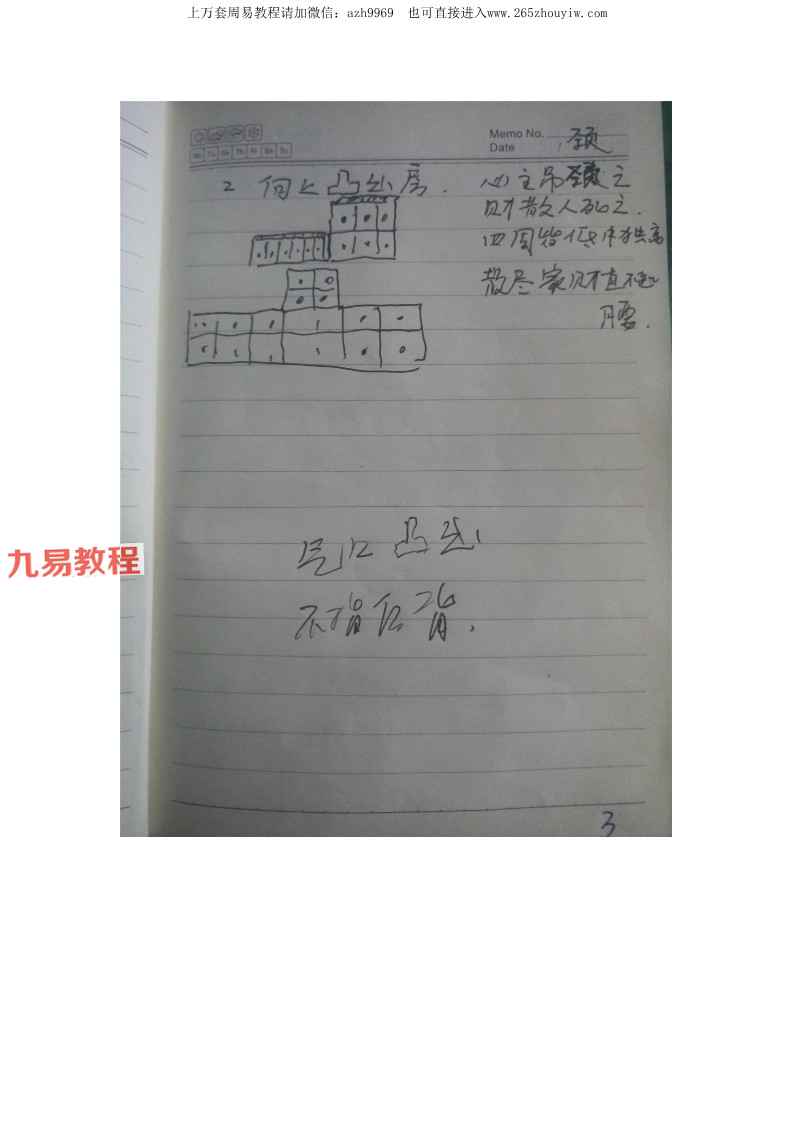 上万套周易教程请加微信：azh9969 也可直接进入www.265zhouyiw.com
Memo No.
Date
颈
Mo Tu We Th Fr Sa Su
2 向上凸出房.
必主吊颈之
财散人死之.
四周皆低中独高
散尽家财直不起
腰.
气口凸出
不指后背.
九易教程
3